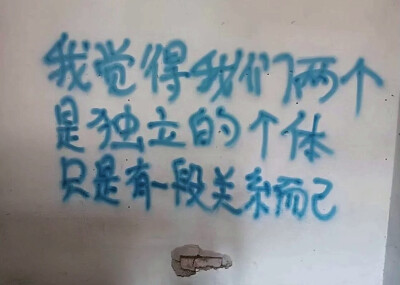 我觉得我们两个
是独立的个体
只是有一段关系而已